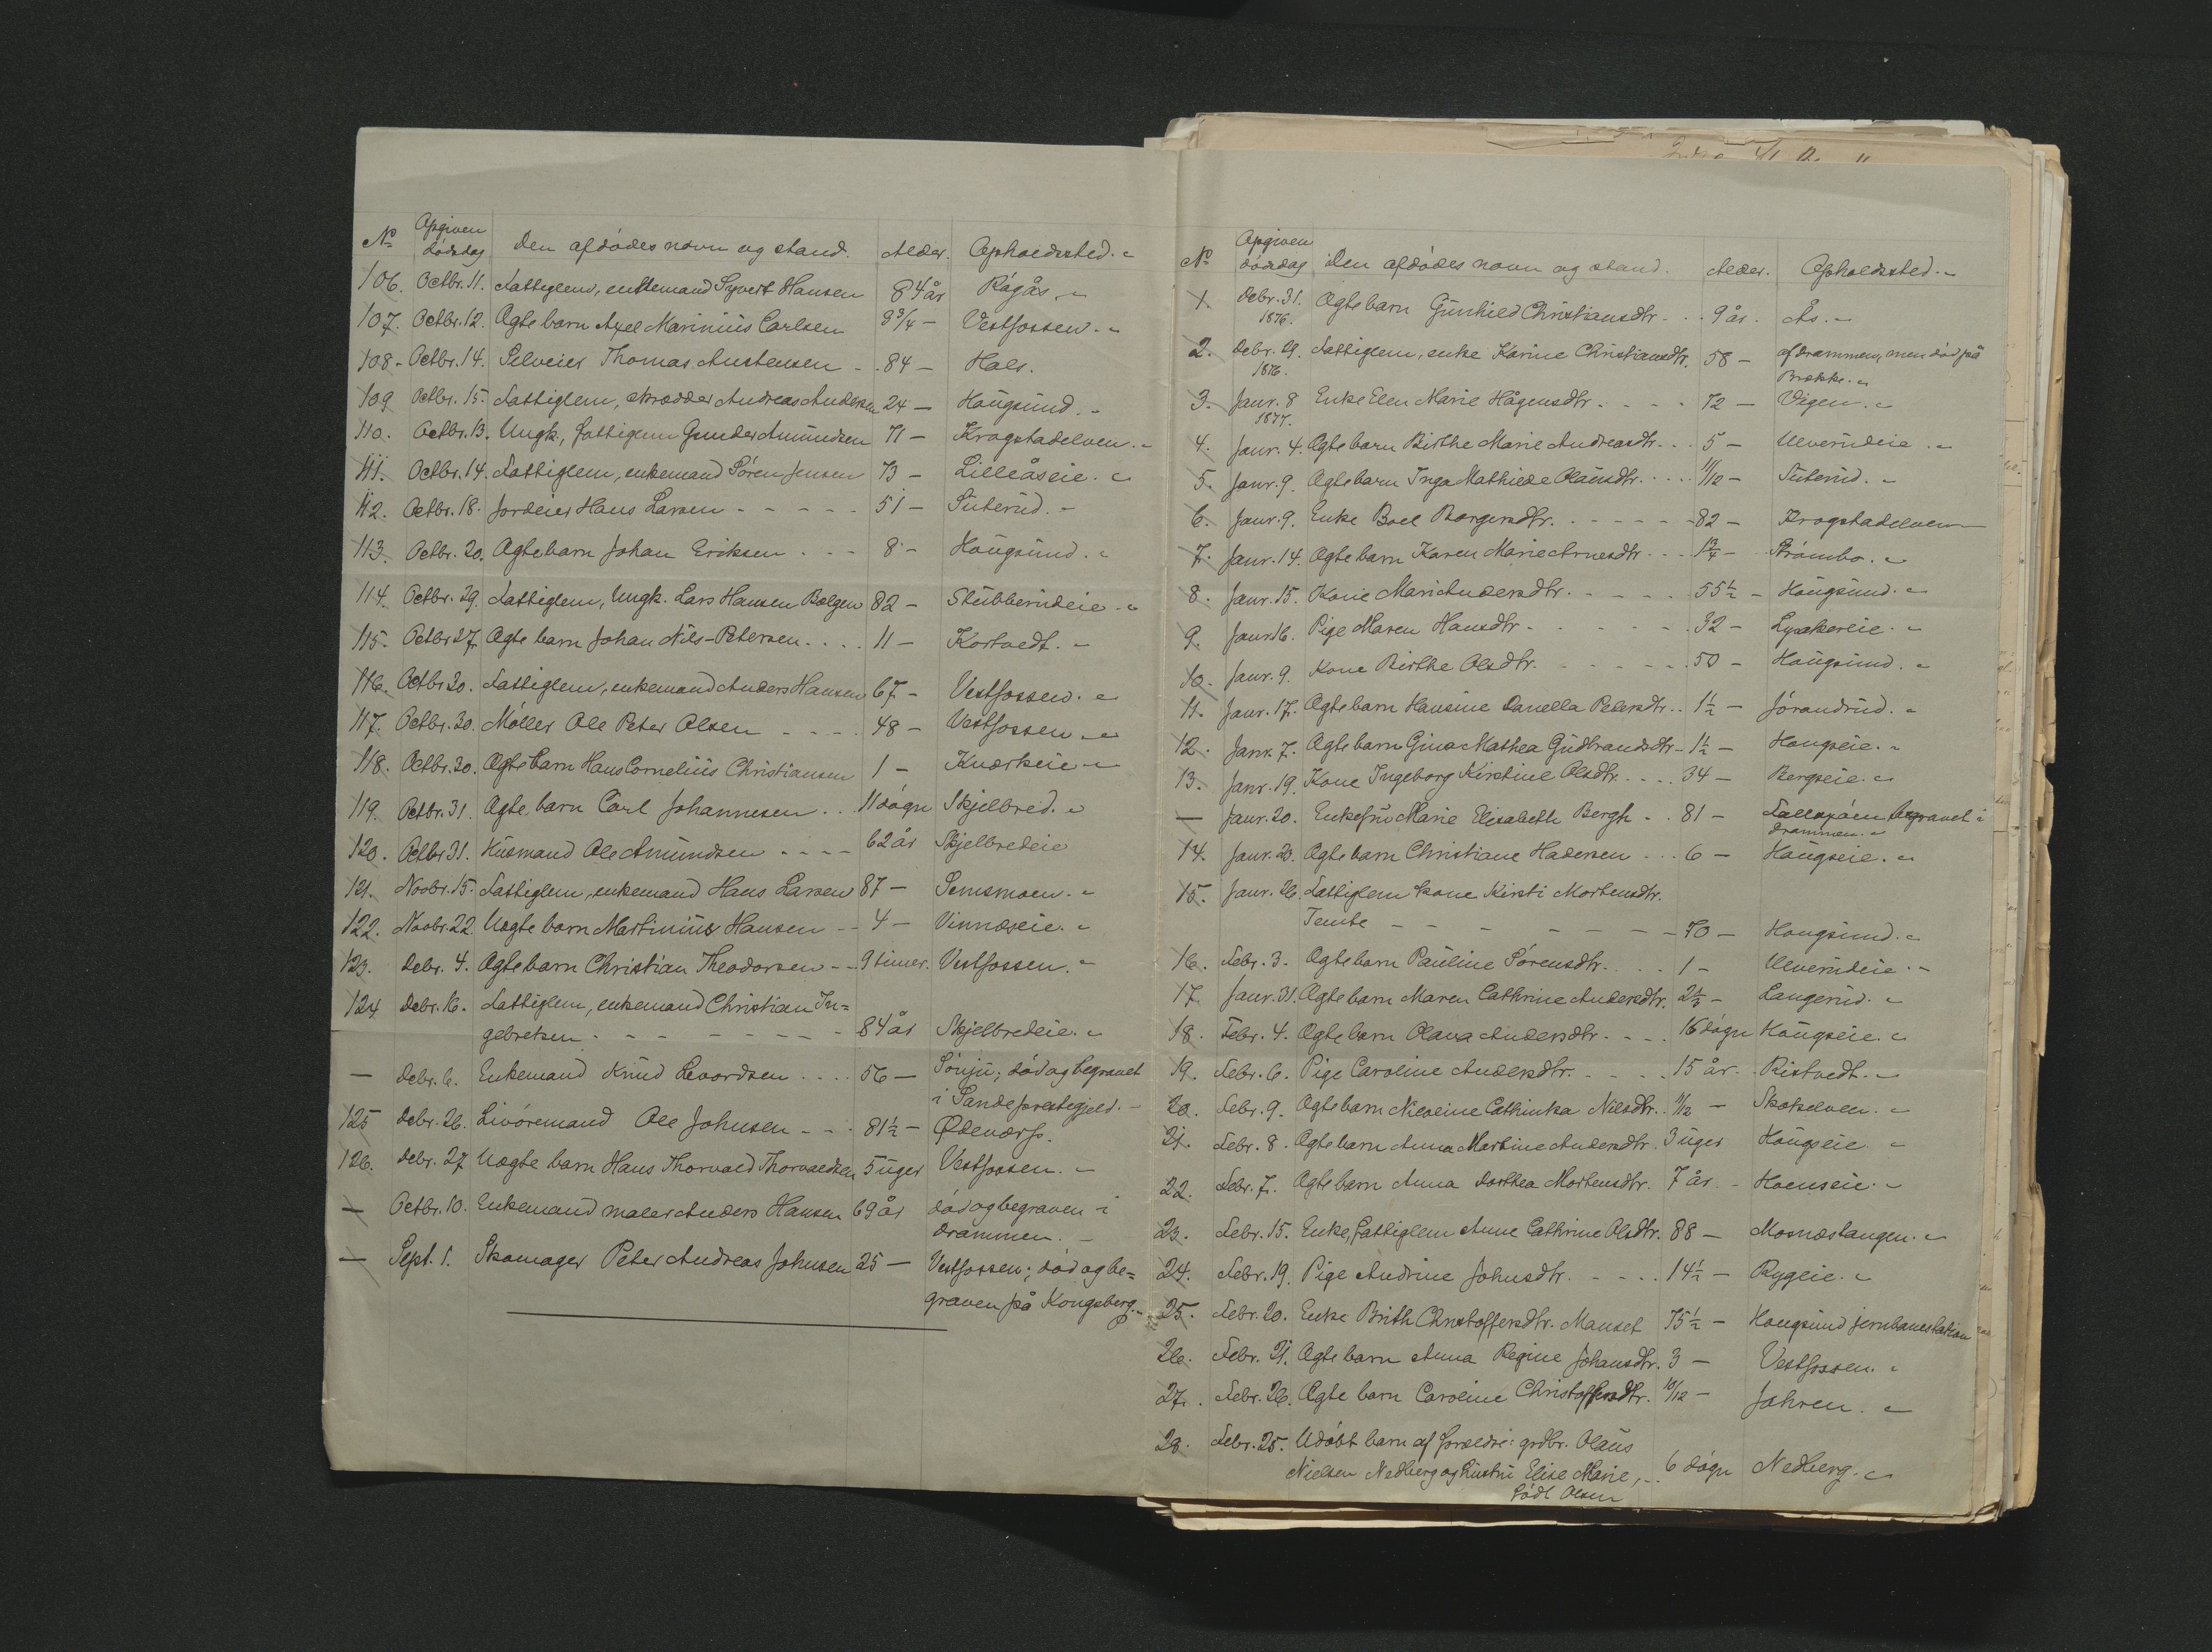 № Opgiven dødsdag Den afdødes navn og stand. Alder. Opholdssted.
106. Octbr. 11. Fattiglem, enkemand Syvert Hansen 84 år Rågås.
107. Octbr. 12. Ægte barn Axel Marinius Carlsen 8 3/4 – Vestfossen.
108. Octbr. 14. Selveier Thomas Austensen 84 – Hals.
109 Octbr. 15. Fattiglem, skrædder Andreas Andersen 24 – Hougsund.
110. Octbr. 13. Ungk., fattiglem Gunder Amundsen 71 – Krogstadelven.
111. Octbr. 14. Fattiglem, enkemand Sören Jensen 73 – Lilleåseie.
112. Octbr. 18. Jordeier Hans Larsen 51 – Süterud.
113. Octbr. 20. Ægte barn Johan Eriksen 8 – Hougsund.
114. Octbr. 29. Fattiglem, Ungk. Lars Hansen Bolgen 82 – Stubberudeie.
115. Octbr 27. Ægte barn Johan Nils-Petersen 11 – Kortvedt.
116. Octbr 30. Fattiglem, enkemand Anders Hansen 67 – Vestfossen.
117. Octbr. 30. Möller Ole Peter Olsen 48 – Vestfossen.
118. Octbr. 30. Ægte barn Hans Cornelius Christiansen 1 – Knorkeie
119. Octbr. 31. Ægte barn Carl Johannesen 11 dögn Skjelbred.
120. Octbr 31. Husmand Ole Amundsen 62 år Skjelbredeie
121. Novbr. 15. Fattiglem, enkemand Hans Larsen 87 – Semsmoen.
122. Novbr. 22. Uægte barn Martinius Hansen 4 – Vinnæseie.
123. Debr. 4. Ægte barn Christian Theodorsen 9 timer. Vestfossen.
124 Debr. 16. Fattiglem, enkemand Christian In=
gebretsen 84 år Skjelbredeie.
— Debr. 6. Enkemand Knud Levordsen 56 – Sönju; död og begravet
i Sande prestegjeld.
125 Debr. 26. Livöremand Ole Johnsen 81½ – Ødeværp.
126. Debr. 27 Uægte barn Hans Thorvald Thorvaldsen 5 uger Vestfossen.
— Octbr. 10. Enkemand maler Anders Hansen 69 år död og begraven i
Drammen.
— Sept. 1. Skomager Peter Andreas Johnsen 25 – Vestfossen; död og be=
graven på Kongsberg.
№ Opgiven dödsdag Den afdödes navn og stand. Alder. Opholdssted.
1. Debr. 31. 1876. Ægte barn Gunhild Christiansdtr. 9 år. Ås.
2. Debr. 29. 1876. Fattiglem, enke Karine Christiansdtr. 58 – af Drammen, men död på
Brekke.
3. Janr. 8 1877. Enke Elen Marie Hågensdtr. 72 – Vigen.
4. Janr. 4. Ægte barn Birthe Marie Andreasdtr. 5 – Ulverudeie.
5. Janr. 9. Ægte barn Inga Mathilde Olausdtr. 11/12 – Süterud.
6. Janr. 9. Enke Boel Borgersdtr. 82 – Krogstadelven
7. Janr. 14. Ægte barn Karen Marie Arnesdtr. 1¾ – Strömbo.
8. Janr. 15. Kone Mari Andersdtr. 55½ – Hougsund.
9. Janr. 16. Pige Maren Hansdtr. 32 – Lysakereie.
10. Janr. 9. Kone Birthe Olsdtr. 50 – Hougsund.
11. Janr. 17. Ægte barn Hansine Danella Petersdtr. 1½ – Jörandrud.
12. Janr. 7. Ægte barn Gina Mathea Gudbrandsdtr. 1½ – Hougseie.
13. Janr. 19. Kone Ingeborg Kirstine Olsdtr. 34 – Bergseie.
— Janr. 20. Enkefru Marie Elisabeth Bergh 81 – begravet i
Drammen.
14. Janr. 20. Ægte barn Christiane Hadersen 6 – Hougseie.
15. Janr. 26. Fattiglem kone Kirsti Mortensdtr.
Tembe 70 – Hougsund.
16. Febr. 3. Ægte barn Pauline Sörensdtr. 1 – Ulverudeie.
17. Janr. 31. Ægte barn Maren Cathrine Andersdtr. 2½ – Langerud.
18. Febr. 4. Ægte barn Olava Andersdtr. 16 dögn Hougseie.
19. Febr. 6. Pige Caroline Andersdtr. 15 år. Ristvedt.
20. Febr. 9. Ægte barn Nicoline Cathinka Nilsdtr. 11/12 – Skotselven.
21. Febr. 8. Ægte barn Anna Martine Andersdtr. 3 uger Hougseie.
22. Febr. 7. Ægte barn Anna Dorthea Mortensdtr. 7 år. Hoenseie.
23. Febr. 15. Enke, fattiglem Anne Cathrine Olsdtr. 88 – Mosnæstangen.
24. Febr. 19. Pige Andrine Johnsdtr. 14½ – Rygeie.
25. Febr. 20. Enke Brith Christoffersdtr. Manset 75½ – Hougsund jernbanestation
26. Febr. 21. Ægte barn Anna Regine Johansdtr. 3 – Vestfossen.
27. Febr. 26. Ægte barn Caroline Christoffersdtr. 10/12 – Jahren.
28. Febr. 25. Udöbt barn af forældre: grdbr. Olaus
Nielsen Nedberg og hustru Elise Marie, 6 dögn Nedberg.
född Olsen